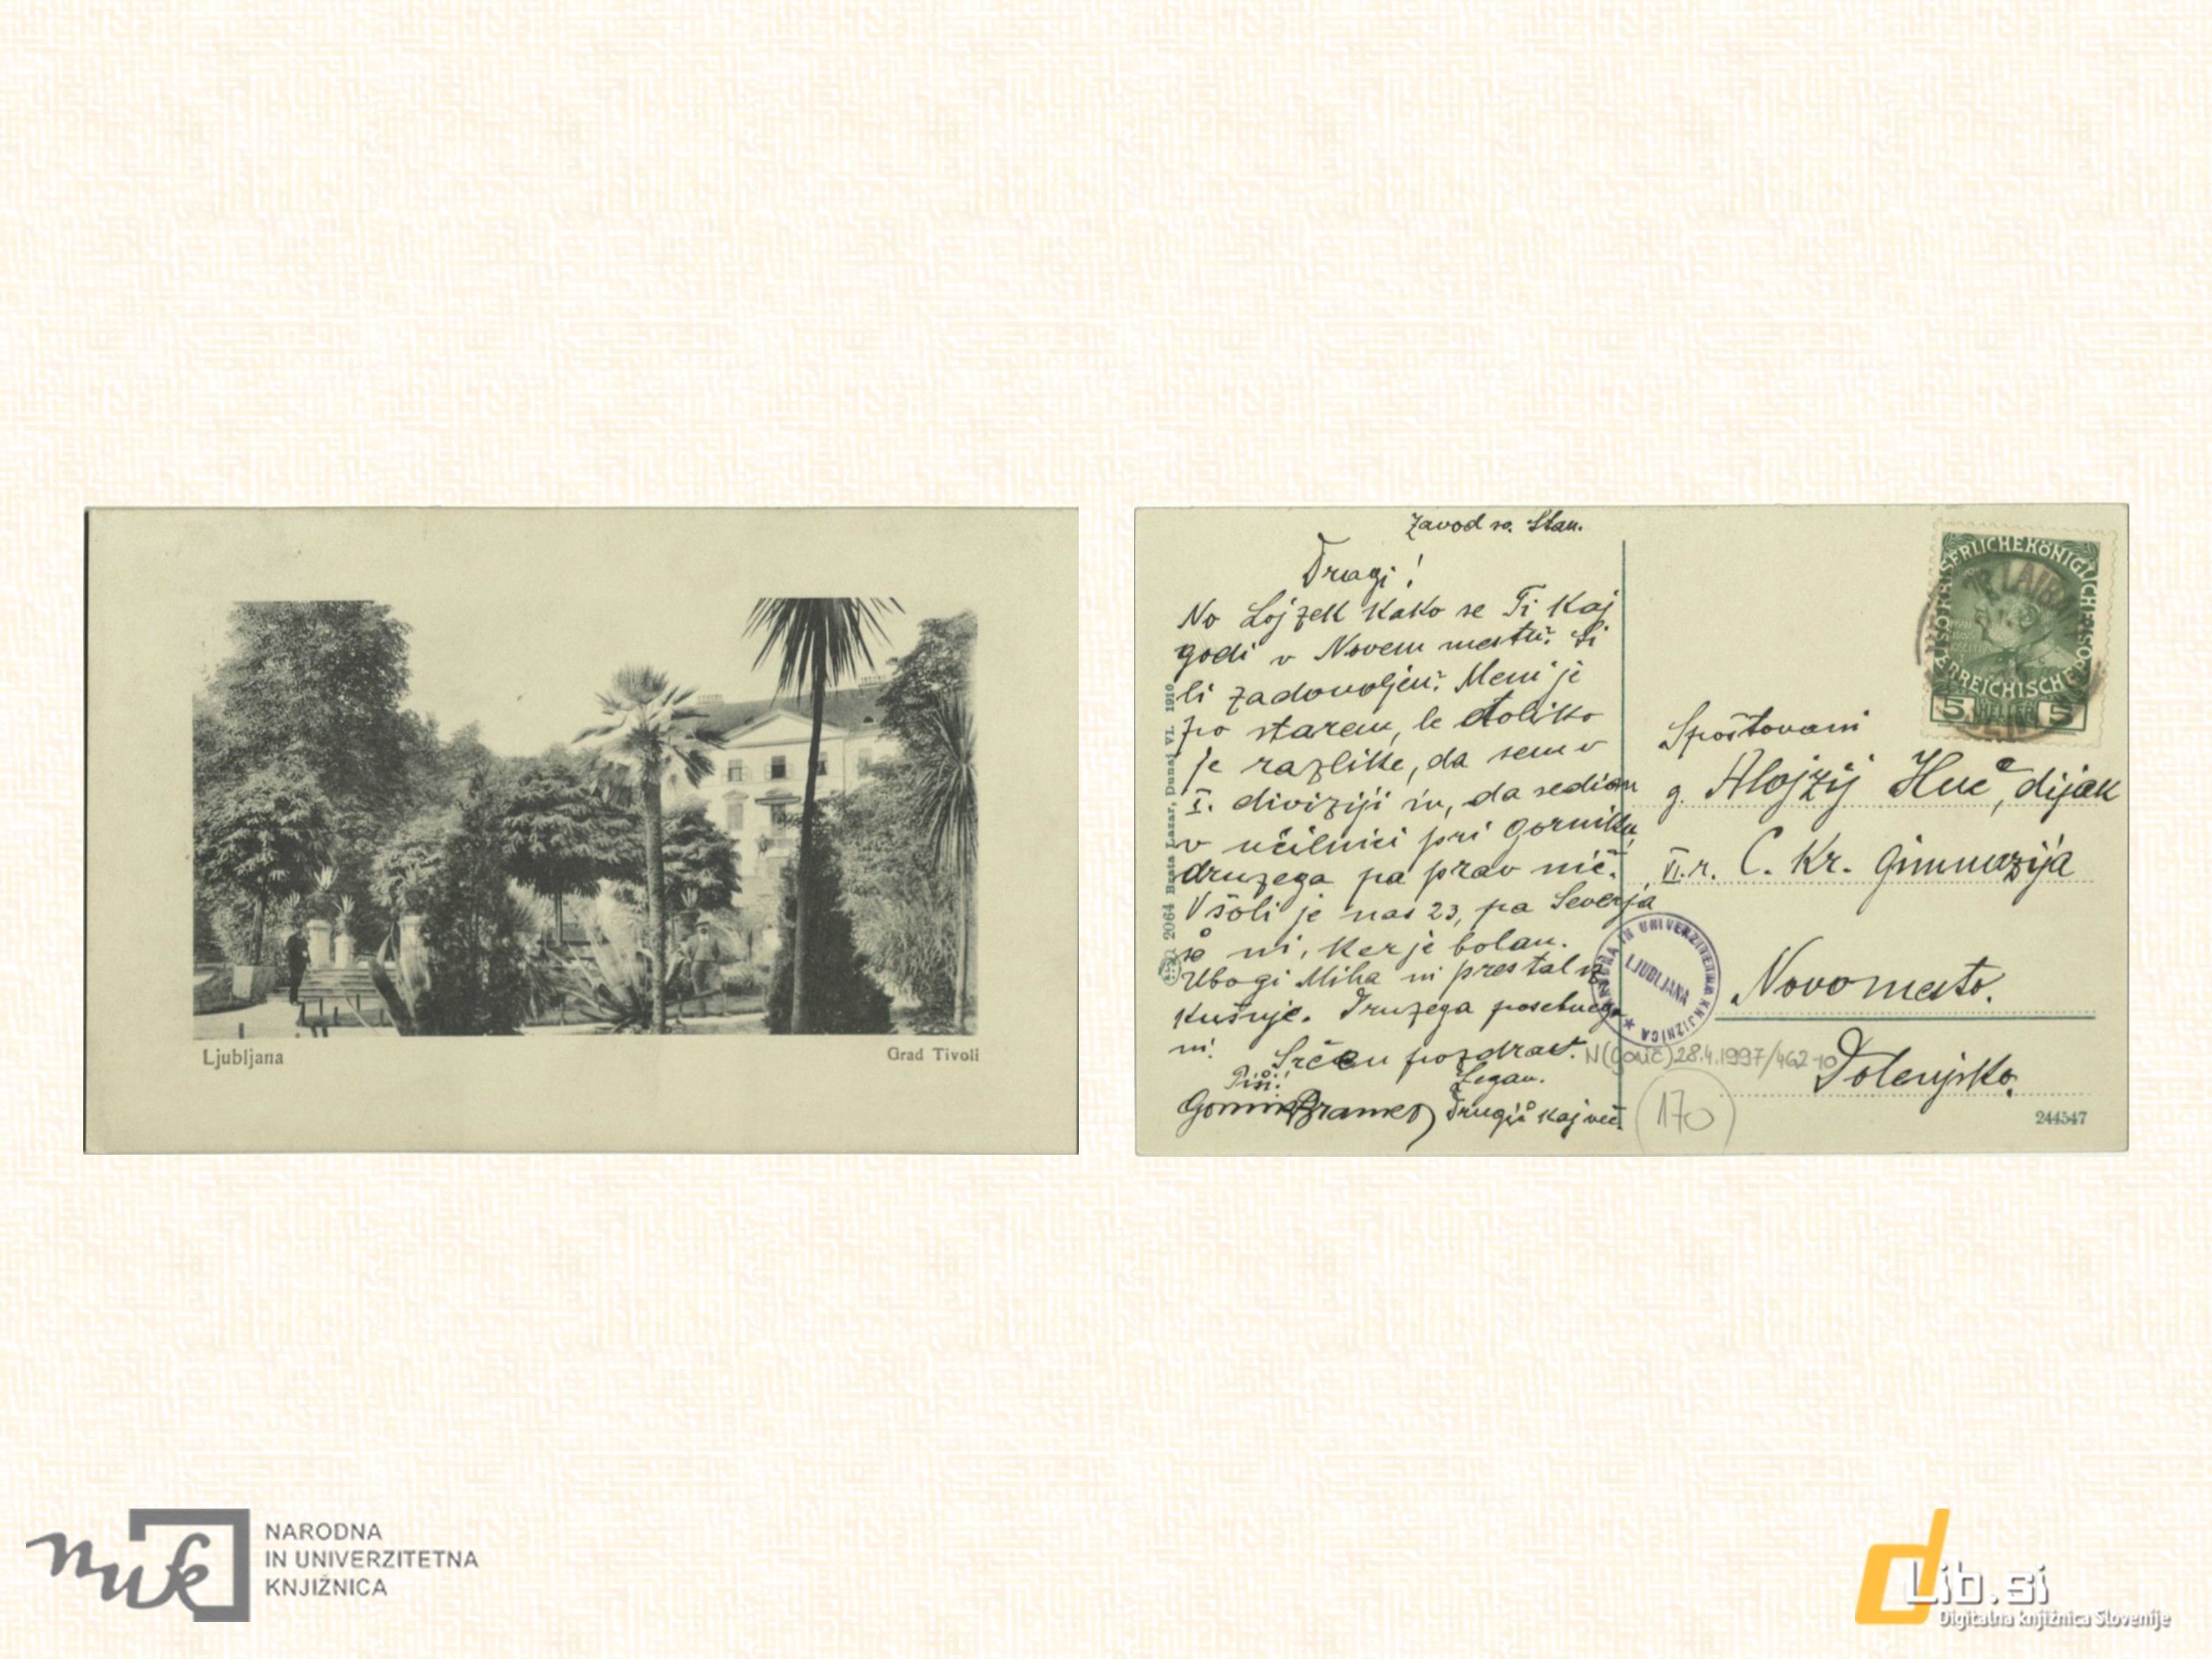 Ljubljana
Grad Tivoli
Zavod sv. Stan.
Dragi!
No Lojzek kako se Ti kaj
godi v Novem mestu? Si
li zadovoljen? Meni je
po starem, le toliko
je razlike, da sem v
I. diviziji in, da sedim
v učilnici pri Gorniku,
druzega pa prav nič.
V šoli je nas 23, pa Severja
še ni, ker je bolan.
Ubogi Miha ni prestal iz
kušnje. Druzega posebnega
ni. Srčen pozdrav.
Piši! Legan.
Drugič kaj več.
2064 Brata Lazar, Dunaj VI. 1910
KAISERLICHEKÖNIGLICHE
ÖSTERREICHISCHE POST
5 HELLER 5
LAIBACH
Spoštovani
g. Alojzij Huč, dijak
VI. r. C. Kr. Gimnazija
Novomesto.
Dolenjsko.
NARODNA IN UNIVERZITETNA KNJIŽNICA
LJUBLJANA
28.4.1997/462-10
170
244547
nuk
NARODNA
IN UNIVERZITETNA
KNJIŽNICA
dLib.si
Digitalna knjižnica Slovenije